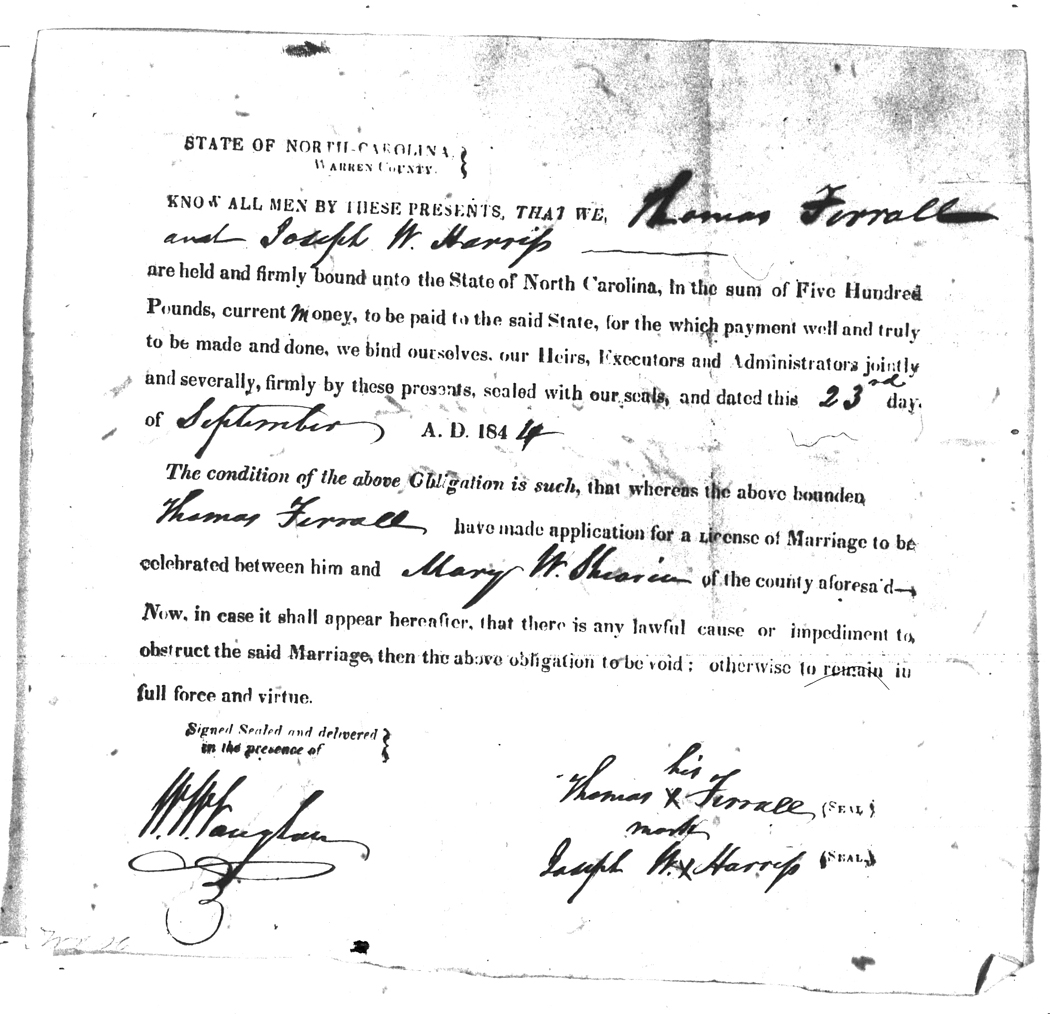 STATE OF NORTH-CAROLINA,
WARREN COUNTY.
KNOW ALL MEN BY THESE PRESENTS, THAT WE, Thomas Ferrall
and Joseph W. Harriss
are held and firmly bound unto the State of North Carolina, in the sum of Five Hundred
Pounds, current Money, to be paid to the said State, for the which payment well and truly
to be made and done, we bind ourselves, our Heirs, Executors and Administrators jointly
and severally, firmly by these presents, sealed with our seals, and dated this 23rd day
of September A. D. 1844
The condition of the above Obligation is such, that whereas the above bounden
Thomas Ferrall have made application for a License of Marriage to be
celebrated between him and Mary W. Shearin of the county aforesa'd
Now, in case it shall appear hereafter, that there is any lawful cause or impediment to
obstruct the said Marriage, then the above obligation to be void; otherwise to remain in
full force and virtue.
Signed Sealed and delivered
in the presence of
his
Thomas X Ferrall (SEAL)
mark
W. W. Vaughan
Joseph W. X Harriss (SEAL)